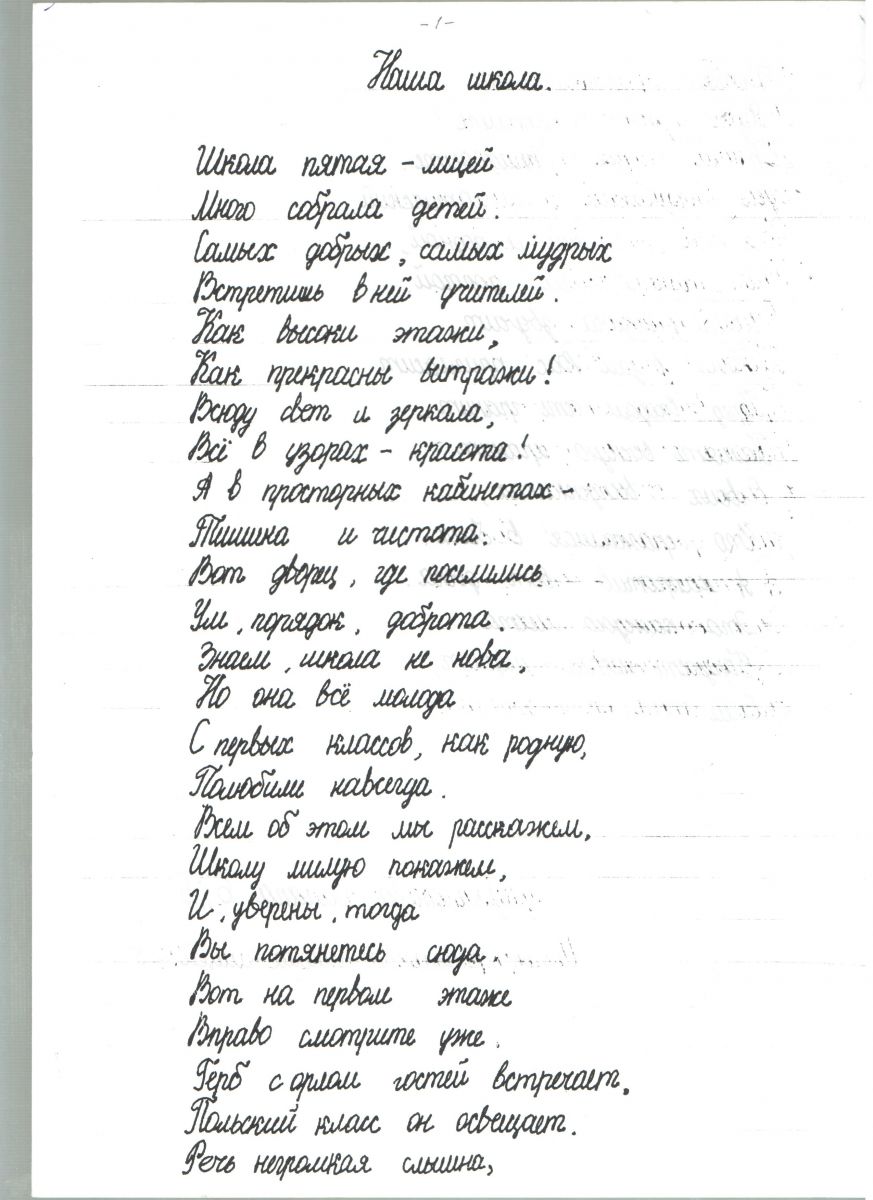 -1-
Наша школа.
Школа пятая - лицей
Много собрала детей.
Самых добрых, самых мудрых
Встретишь в ней учителей.
Как высоки этажи,
Как прекрасны витражи!
Всюду свет и зеркала,
Всё в узорах - красота!
А в просторных кабинетах -
Тишина и чистота.
Вот дворец, где поселились
Ум, порядок, доброта.
Знаем, школа не нова,
Но она всё молода
С первых классов, как родную,
Полюбили навсегда.
Всем об этом мы расскажем,
Школу милую покажем,
И, уверены, тогда
Вы потянетесь сюда.
Вот на первом этаже
Вправо смотрите уже.
Герб с орлом гостей встречает,
Польский класс он освещает.
Речь негромкая слышна,